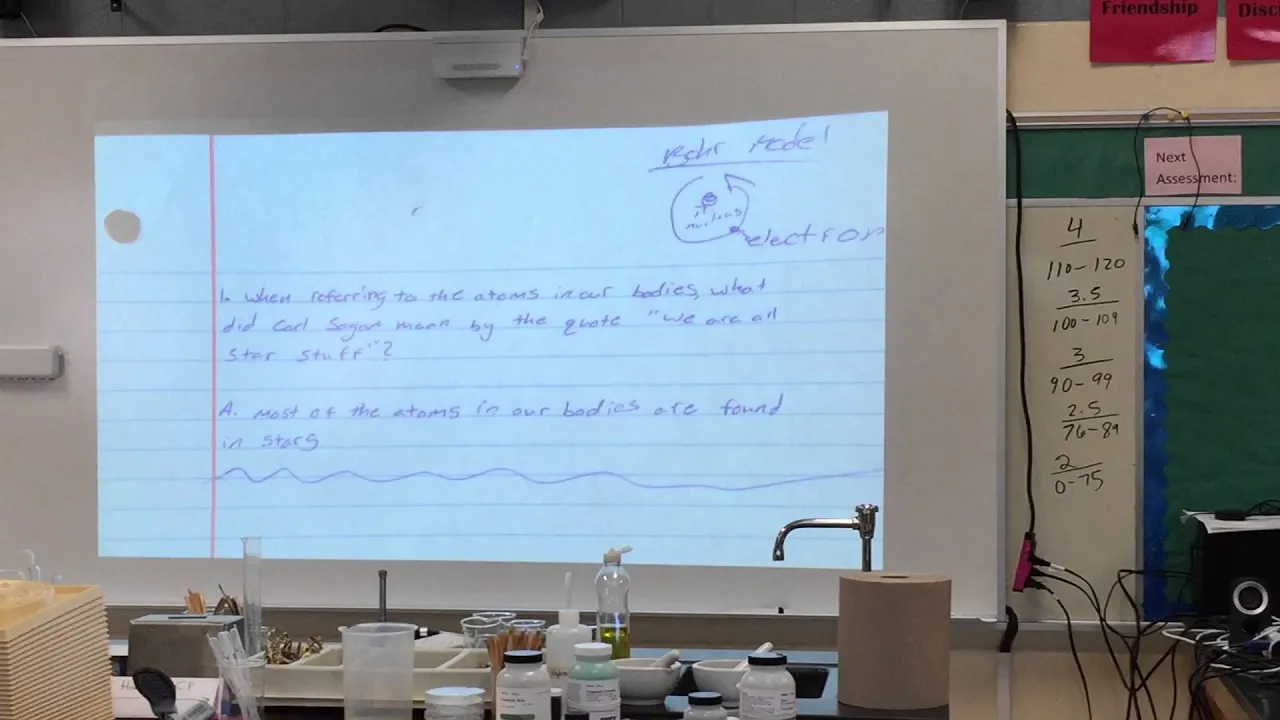 Friendship
Disc
Bohr Model
nucleus
electron
1. When referring to the atoms in our bodies, what
did Carl Sagan mean by the quote "We are all
star stuff"?
A. Most of the atoms in our bodies are found
in stars
Next
Assessment:
4
110-120
3.5
100-109
3
90-99
2.5
76-89
2
0-75